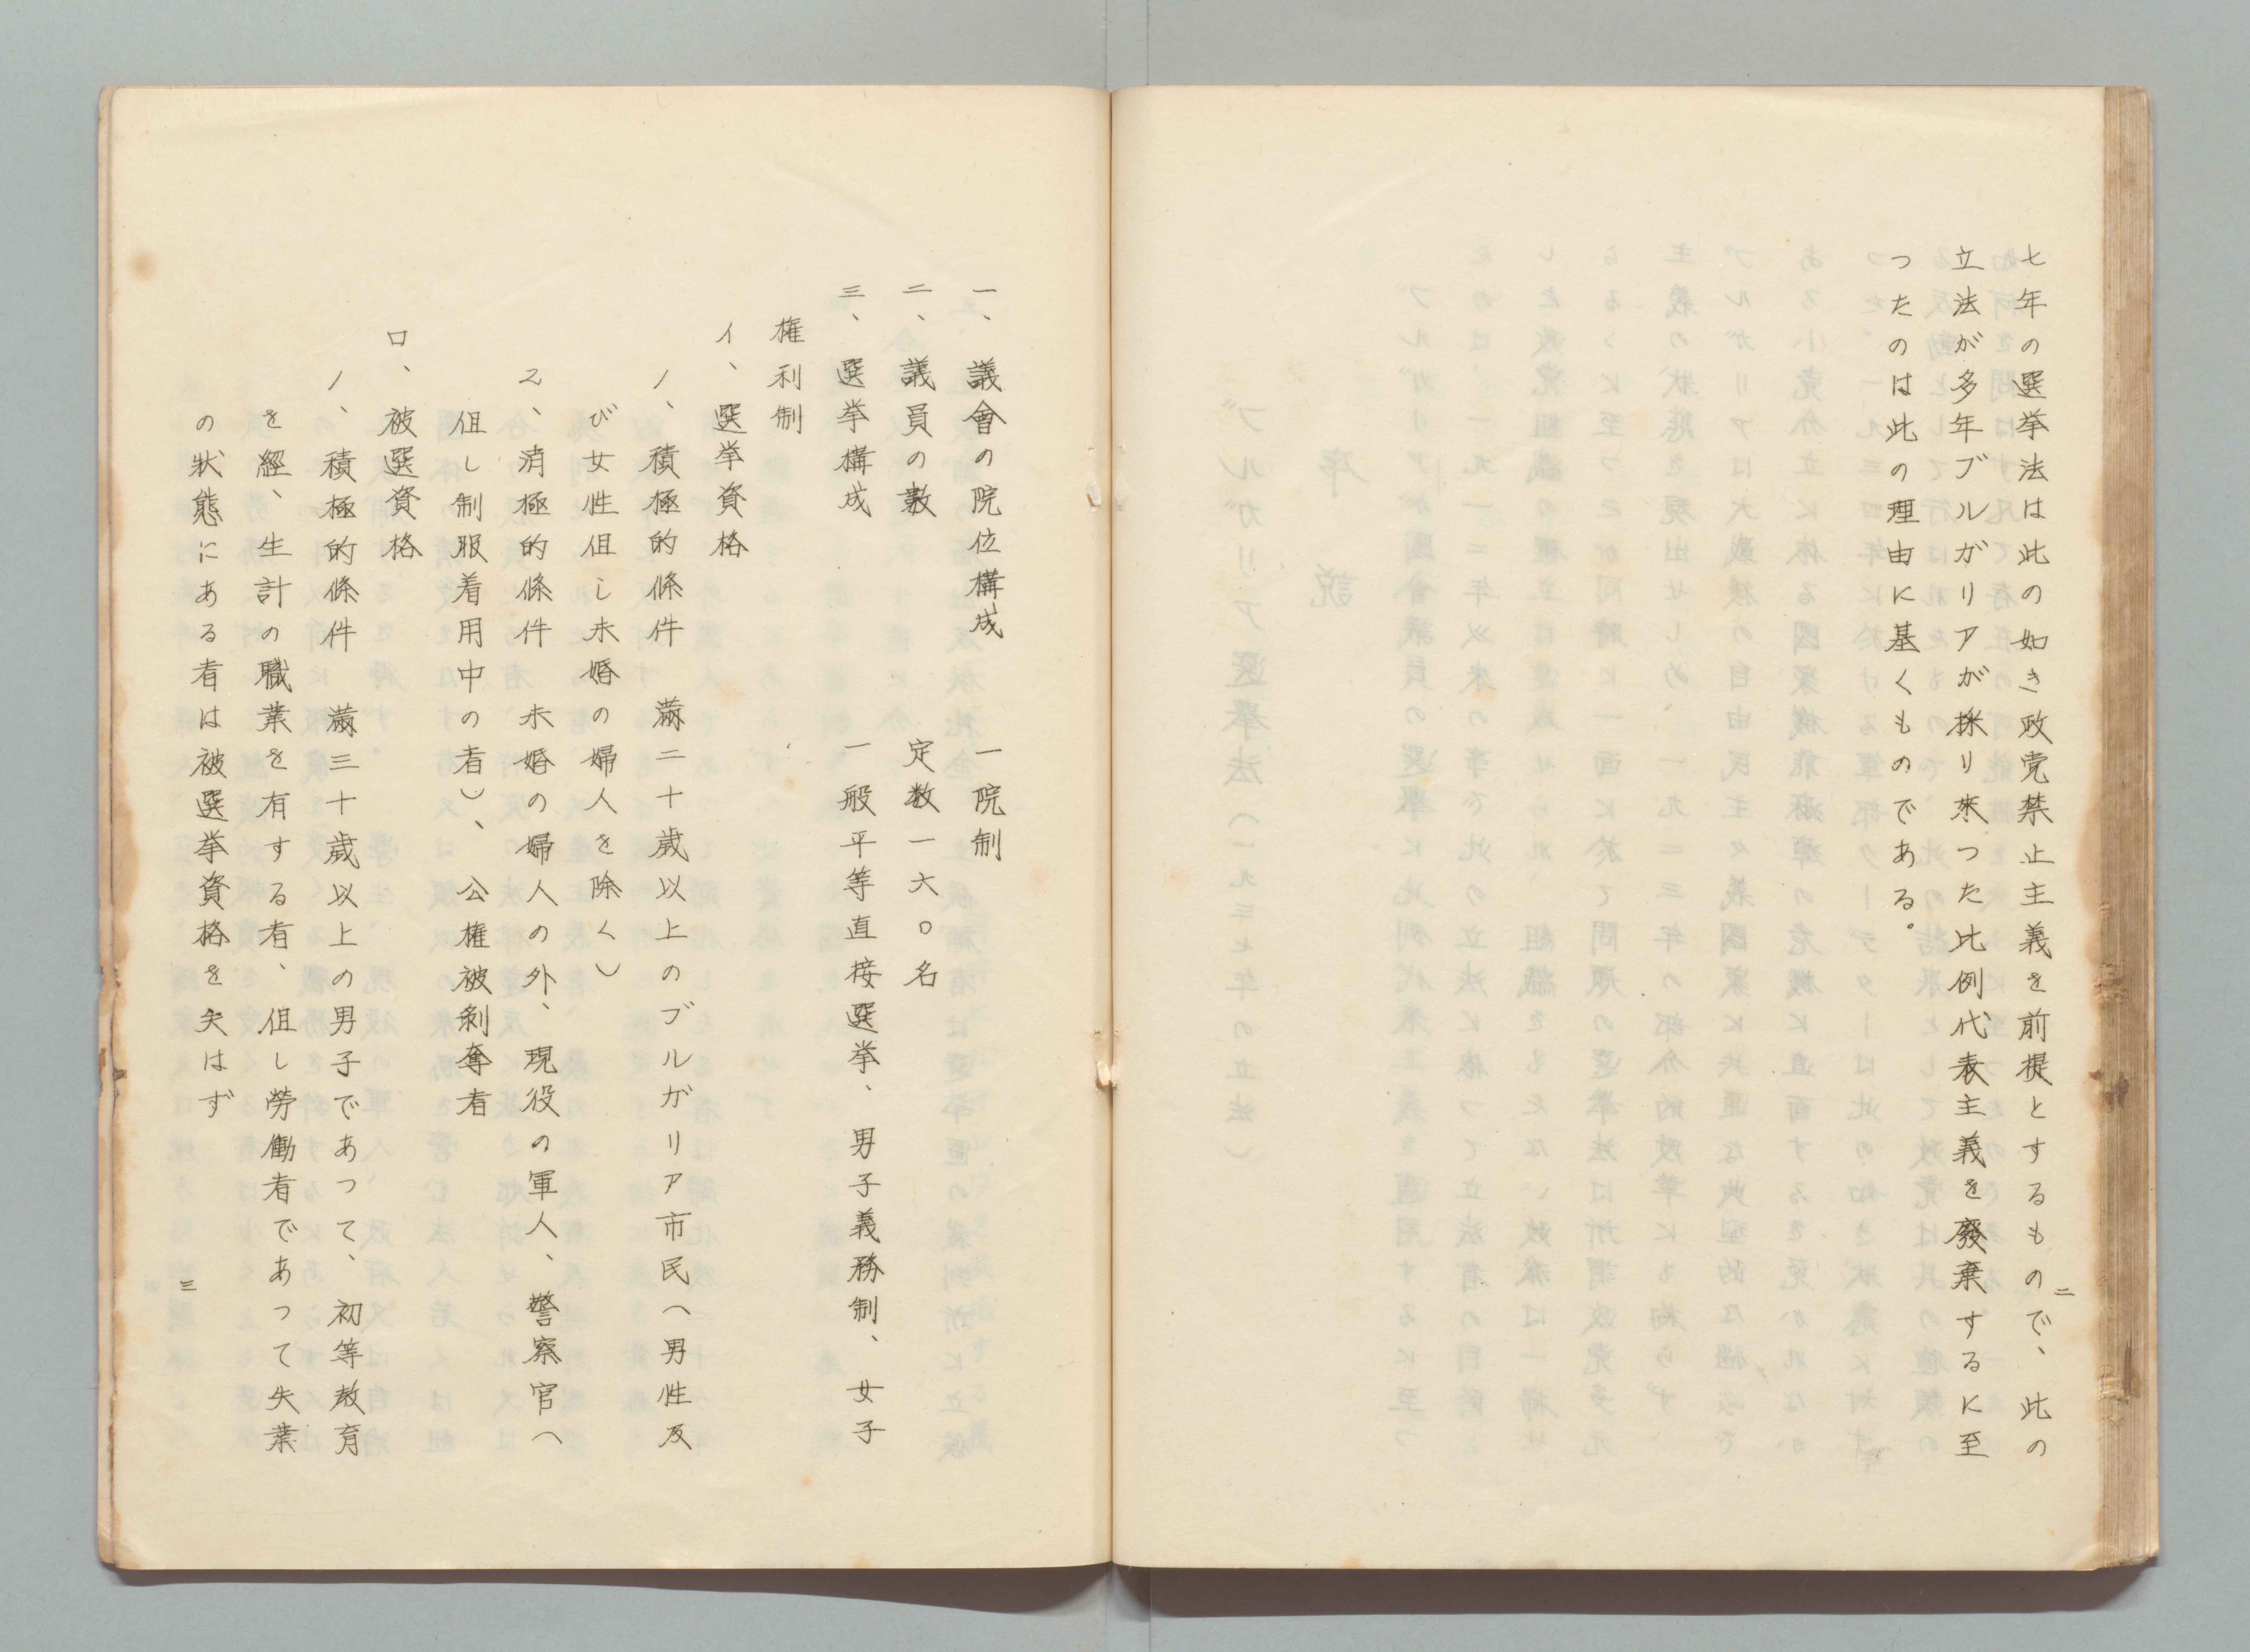 七年の選挙法は此の如き政党禁止主義を前提とするもので、此の
立法が多年ブルガリアが採り來つた比例代表主義を廢棄するに至
つたのは此の理由に基くものである。
二
一、議會の院位構成　一院制
二、議員の數　定数一六〇名
三、選挙構成　一般平等直接選挙、男子義務制、女子
権利制
イ、選挙資格
1、積極的條件　満二十歳以上のブルガリア市民(男性及
び女性但し未婚の婦人を除く)
2、消極的條件　未婚の婦人の外、現役の軍人、警察官(
但し制服着用中の者)、公権被剝奪者
ロ、被選資格
1、積極的條件　満三十歳以上の男子であつて、初等教育
を經、生計の職業を有する者、但し勞働者であつて失業
の状態にある者は被選挙資格を失はず
三